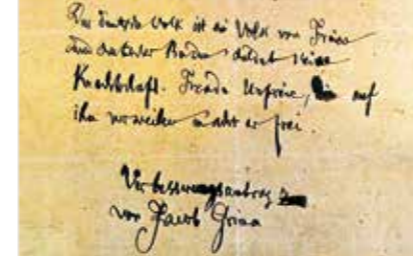 Das deutsche Volk ist ein Volk von Freien
und deutscher Boden duldet keine
Knechtschaft. Fremde Unfreie, auf
ihm verweilen macht er frei.
Verbesserungsantrag
von Jacob Grimm